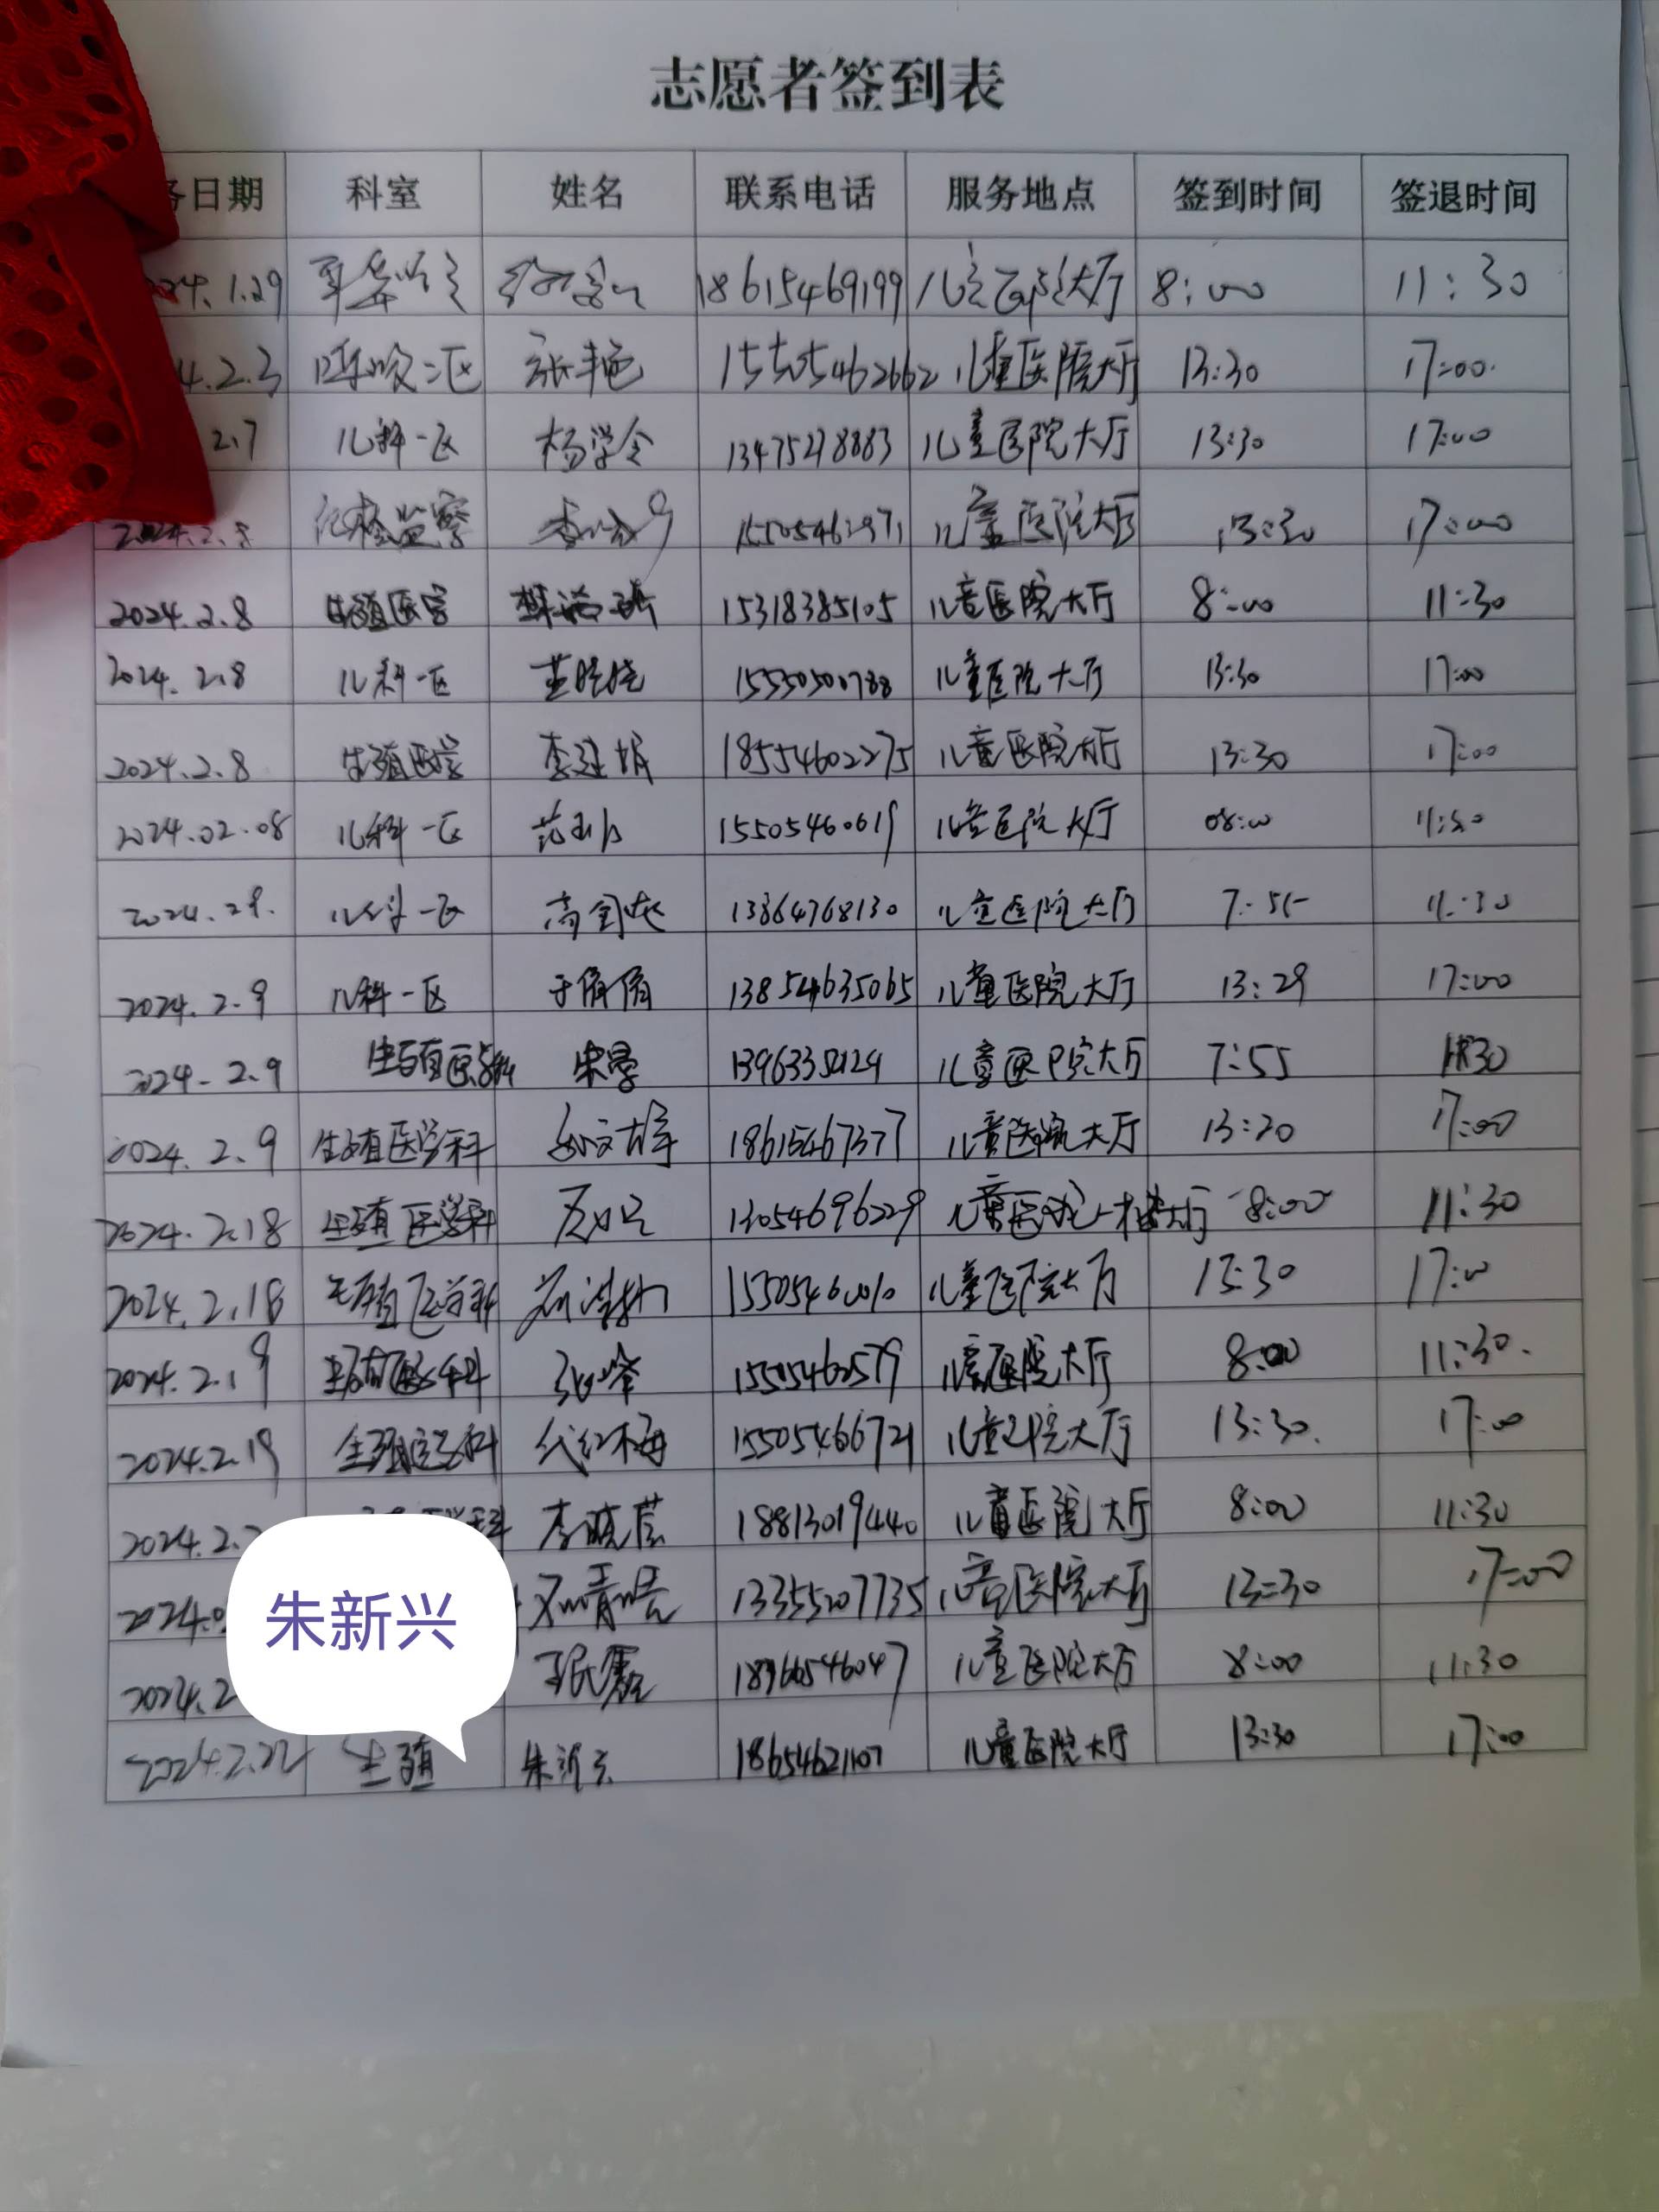 志愿者签到表
务日期 科室 姓名 联系电话 服务地点 签到时间 签退时间
24.1.29 18615469199 儿童医院大厅 8:00 11:30
4.2.3 呼吸二区 张艳 15505462662 儿童医院大厅 13:30 17:00.
2.7 儿科一区 杨学令 13475278883 儿童医院大厅 13:30 17:00
2024.2.8 纪检监察 15505462971 儿童医院大厅 13:30 17:00
2024.2.8 生殖医学 15318385105 儿童医院大厅 8:00 11:30
2024.2.8 儿科一区 15550500788 儿童医院大厅 13:30 17:00
2024.2.8 生殖医学 李建娥 18554602275 儿童医院大厅 13:30 17:00
2024.02.08 儿科一区 15505460619 儿童医院大厅 08:00 11:30
2024.2.9. 儿科一区 13864768130 儿童医院大厅 7:55 11:30
2024.2.9 儿科一区 于倩倩 13854635065 儿童医院大厅 13:29 17:00
2024-2.9 生殖医学科 朱曼 儿童医院大厅 7:55 11:30
2024.2.9 生殖医学科 18615467377 儿童医院大厅 13:30 17:00
2024.2.18 生殖医学科 13054696229 儿童医院一楼大厅 8:00 11:30
2024.2.18 生殖医学科 15505460010 儿童医院大厅 13:30 17:00
2024.2.19 生殖医学科 张峰 15505462579 儿童医院大厅 8:00 11:30.
2024.2.19 生殖医学科 代红梅 15505466721 儿童医院大厅 13:30. 17:00
2024.2. 医学科 李晓蕊 18813019440 儿童医院大厅 8:00 11:30
2024. 邓晴晴 13355207735 儿童医院大厅 13:30 17:00
朱新兴
2024.2 18366546047 儿童医院大厅 8:00 11:30
2024.2.22 生殖 朱新兴 18654621107 儿童医院大厅 13:30 17:00